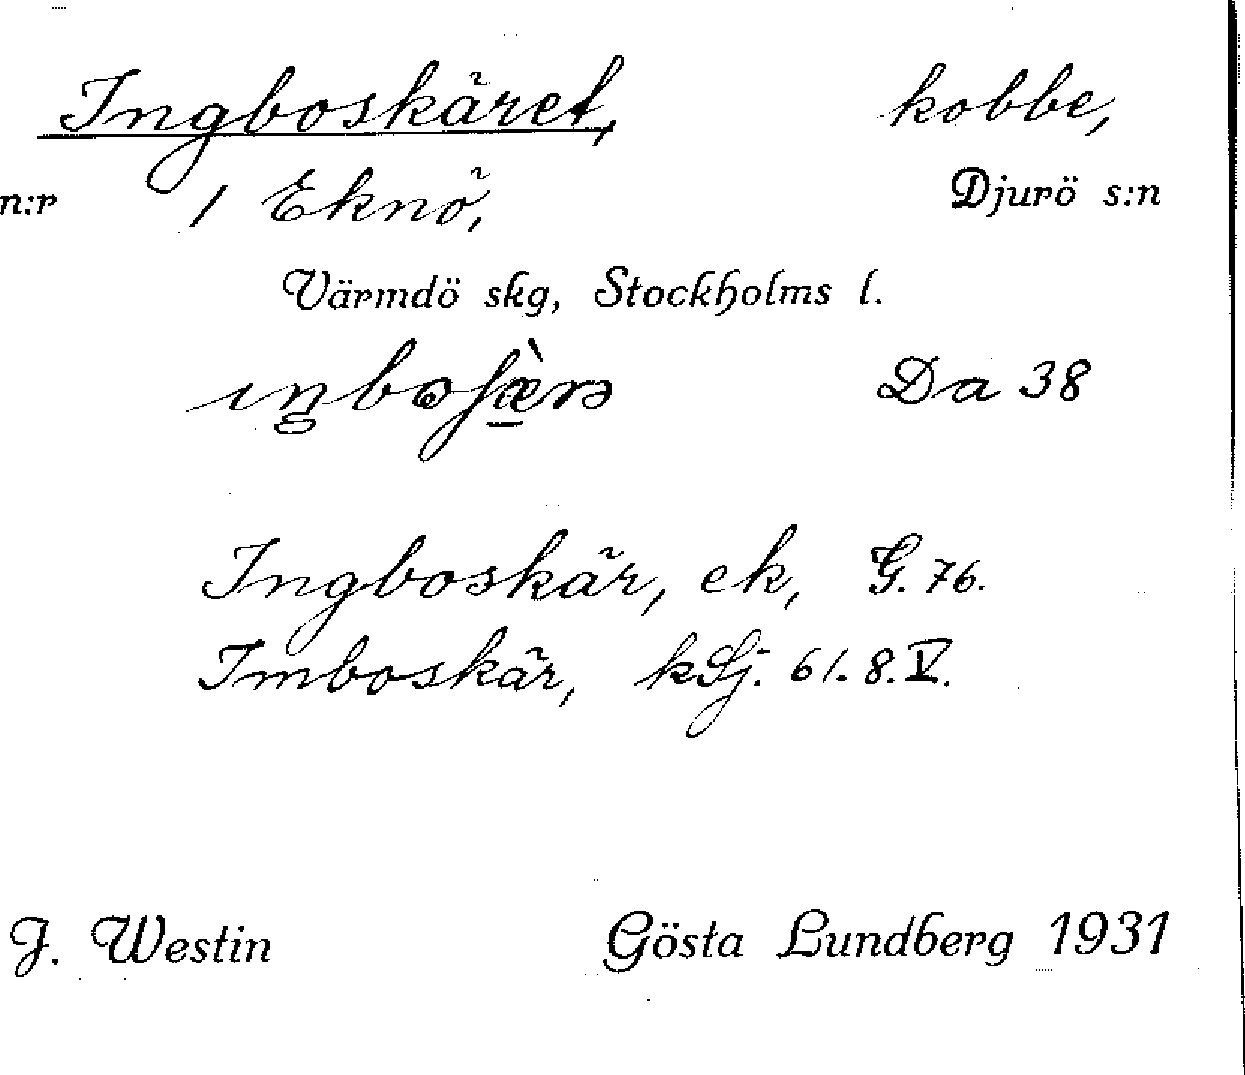 Ingboskäret, kobbe,
n:r 1 Eknö, Djurö s:n
Värmdö skg, Stockholms l.
Da 38
Ingboskär, ek, G. 76.
Imboskär, kSj. 61. 8. V.
J. Westin Gösta Lundberg 1931